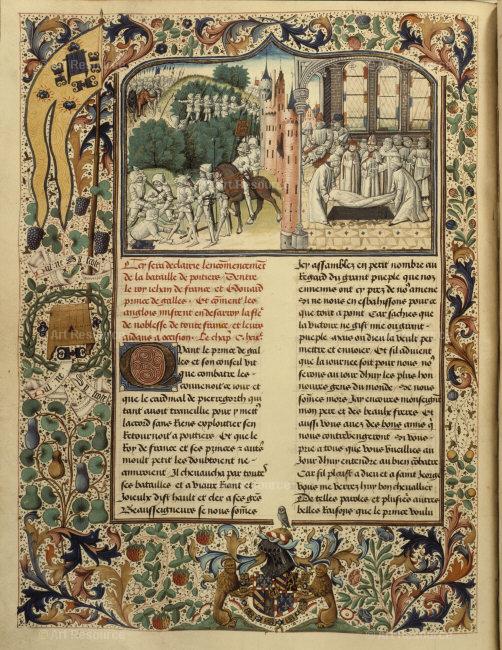 Icy sera declairie lencommencement
de la bataille de poitiers Dentre
le roy iehan de france et Edouard
prince de galles . Et comment les
anglois misrent en desarroy la fle
de noblesse de toute france et leurs
aidans a occision . Le chap
Quant le prince de gal
les et son conseil vit
que combatre les
conuenoit ce iour et
que le cardinal de pierregorth qui
tant auoit trauueillie pour y mettre
laccord sans Riens exploitier sen
Retournoit a poitiers Et que le
Roy de france et ses princes
moult petit les doubtoient ne
amiroient Il cheuaucha par toutes
ses batailles et a viaux Riant et
Joieulx dist hault et cler a ses gens
Beausseigneurs se nous sommes
Icy assamblez en petit nombre au
regard du grant pueple que noz
ennemis ont cy prez de nous
ne nous en esbahissons pour ce
que tout a point Car sachies que
la victoire ne gist mie ou grant
pueple Mais ou dieu la veult per
mettre et enuoier . Et sil aduient
que la iournee soit pour nous nous
serons au iour dhuy les plus hon
nourez gens du monde Se nous
sommes mors Jay encoires monseigneur
mon pere et des beaulx freres Et
aussi vous auez des bons amis
nous contrevengeront Si vous
prie a tous que vous vueilliez au
Jour dhuy entendre au bien combatre
Car sil plaist a dieu et a saint Jorge
vous me verrez huy bon cheuallier
De telles paroles et plusieurs autres
belles Raisons que le prince voulu
© Art Resource